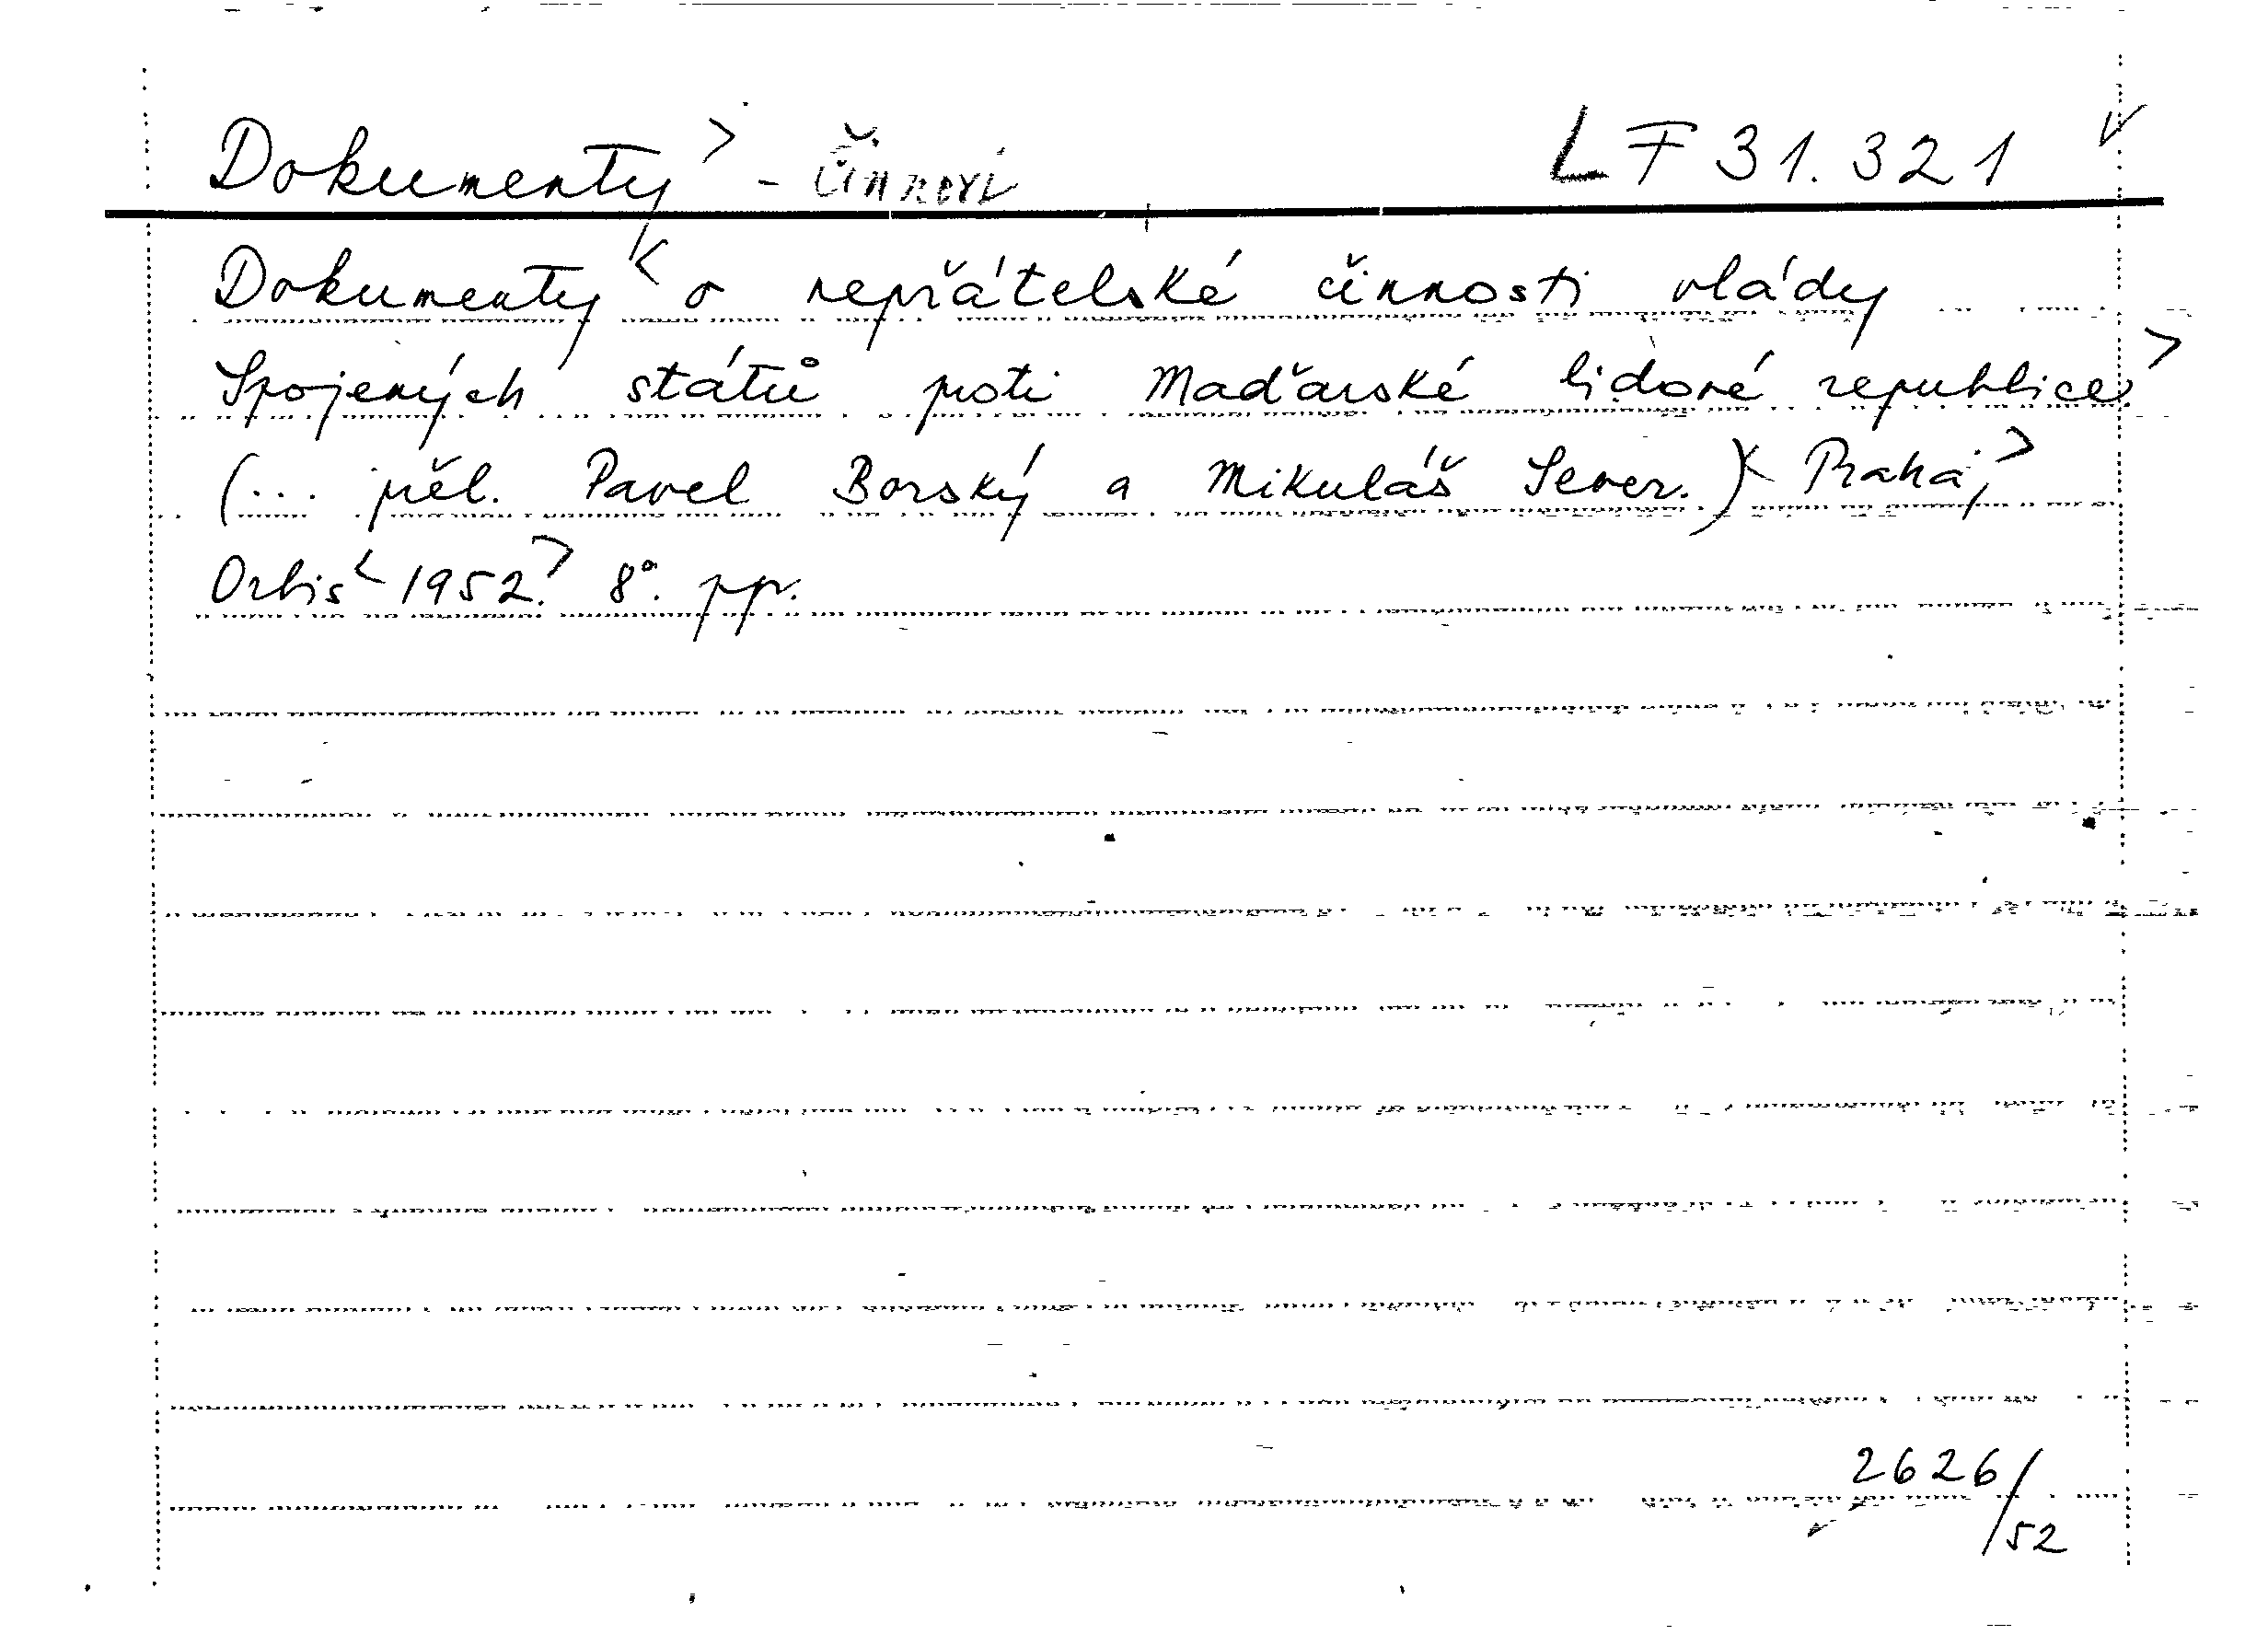 Dokumenty > - činnosti LF 31.321 v
Dokumenty < o nepřátelské činnosti vlády
Spojených států proti Maďarské lidové republice. >
(... přel. Pavel Borský a Mikuláš Sever.) < Praha, >
Orbis < 1952. > 8°. pp.
2626/
52